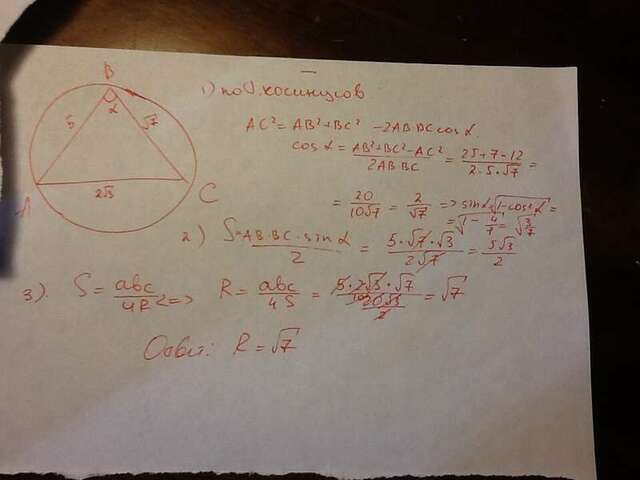 B
α
5 √7
2√3
A C
1) по т. косинусов
AC² = AB² + BC² - 2AB·BC cos α
cos α = (AB² + BC² - AC²)/(2AB·BC) = (25 + 7 - 12)/(2·5·√7) =
= 20/(10√7) = 2/√7 => sin α = √(1 - cos² α) =
= √(1 - 4/7) = √(3/7)
2) S = (AB·BC·sin α)/2 = (5·√7·√3)/(2√7) = 5√3/2
3). S = abc/4R => R = abc/4S = (5·2√3·√7)/(20√3/2) = √7
Ответ: R = √7